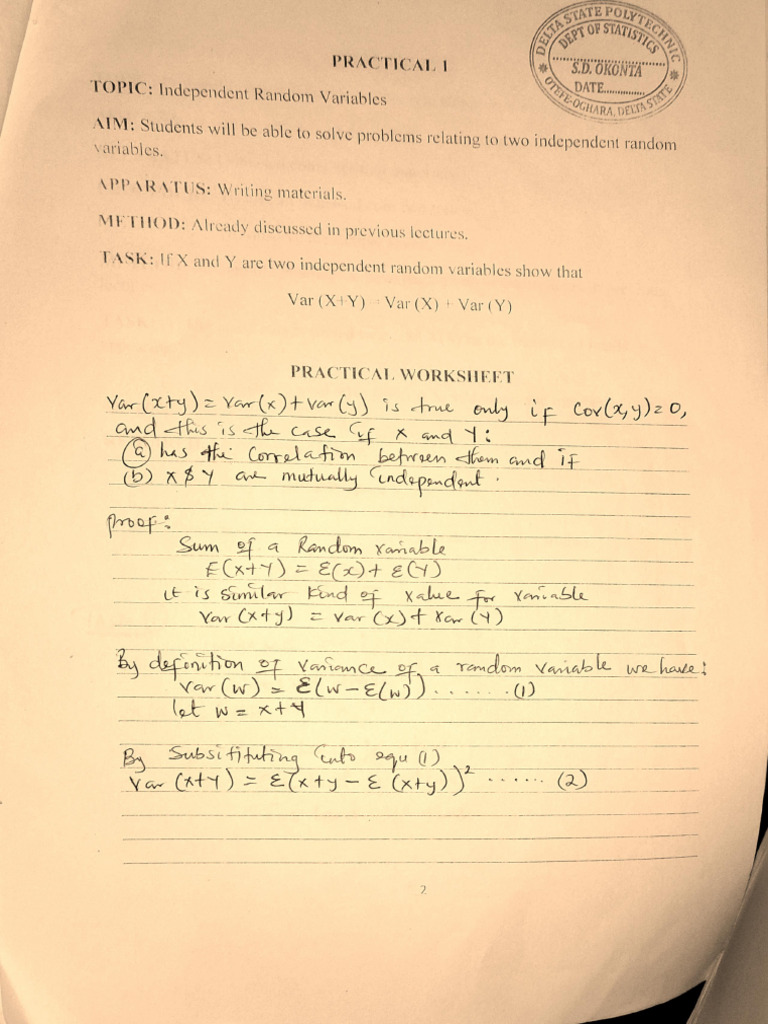 DELTA STATE POLYTECHNIC
DEPT OF STATISTICS
S.D. OKONTA
DATE..............
OTEFE-OGHARA, DELTA STATE
PRACTICAL 1
TOPIC: Independent Random Variables
AIM: Students will be able to solve problems relating to two independent random
variables.
APPARATUS: Writing materials.
METHOD: Already discussed in previous lectures.
TASK: If X and Y are two independent random variables show that
Var (X+Y) = Var (X) + Var (Y)
PRACTICAL WORKSHEET
Var (x+y) = Var (x) + Var (y) is true only if Cov(x,y)=0,
and this is the case if X and Y:
(a) has the Correlation between them and if
(b) X $ Y are mutually independent.
Proof:
Sum of a Random variable
E(X+Y) = E(x) + E(Y)
it is similar kind of value for variable
Var (x+y) = Var (x) + Var (Y)
By definition of variance of a random variable we have:
Var (w) = E(w-E(w)) ....... (1)
let w = x+y
By Substituting into equ (1)
Var (x+y) = E(x+y - E (x+y))² ...... (2)
2